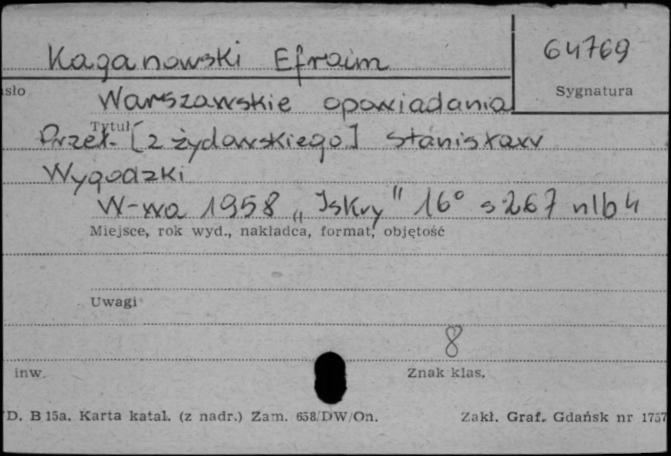 Kaganowski Efraim
64769
Sygnatura
asło
Warszawskie opowiadania
Tytuł
Przeł. [z żydowskiego] Stanisław
Wygodzki
W-wa 1958 „Iskry" 16° s 267 nlb 4
Miejsce, rok wyd., nakładca, format, objętość
Uwagi
8
inw.
Znak klas.
D. B 15a. Karta katal. (z nadr.) Zam. 658/DW/On.
Zakł. Graf. Gdańsk nr 1757